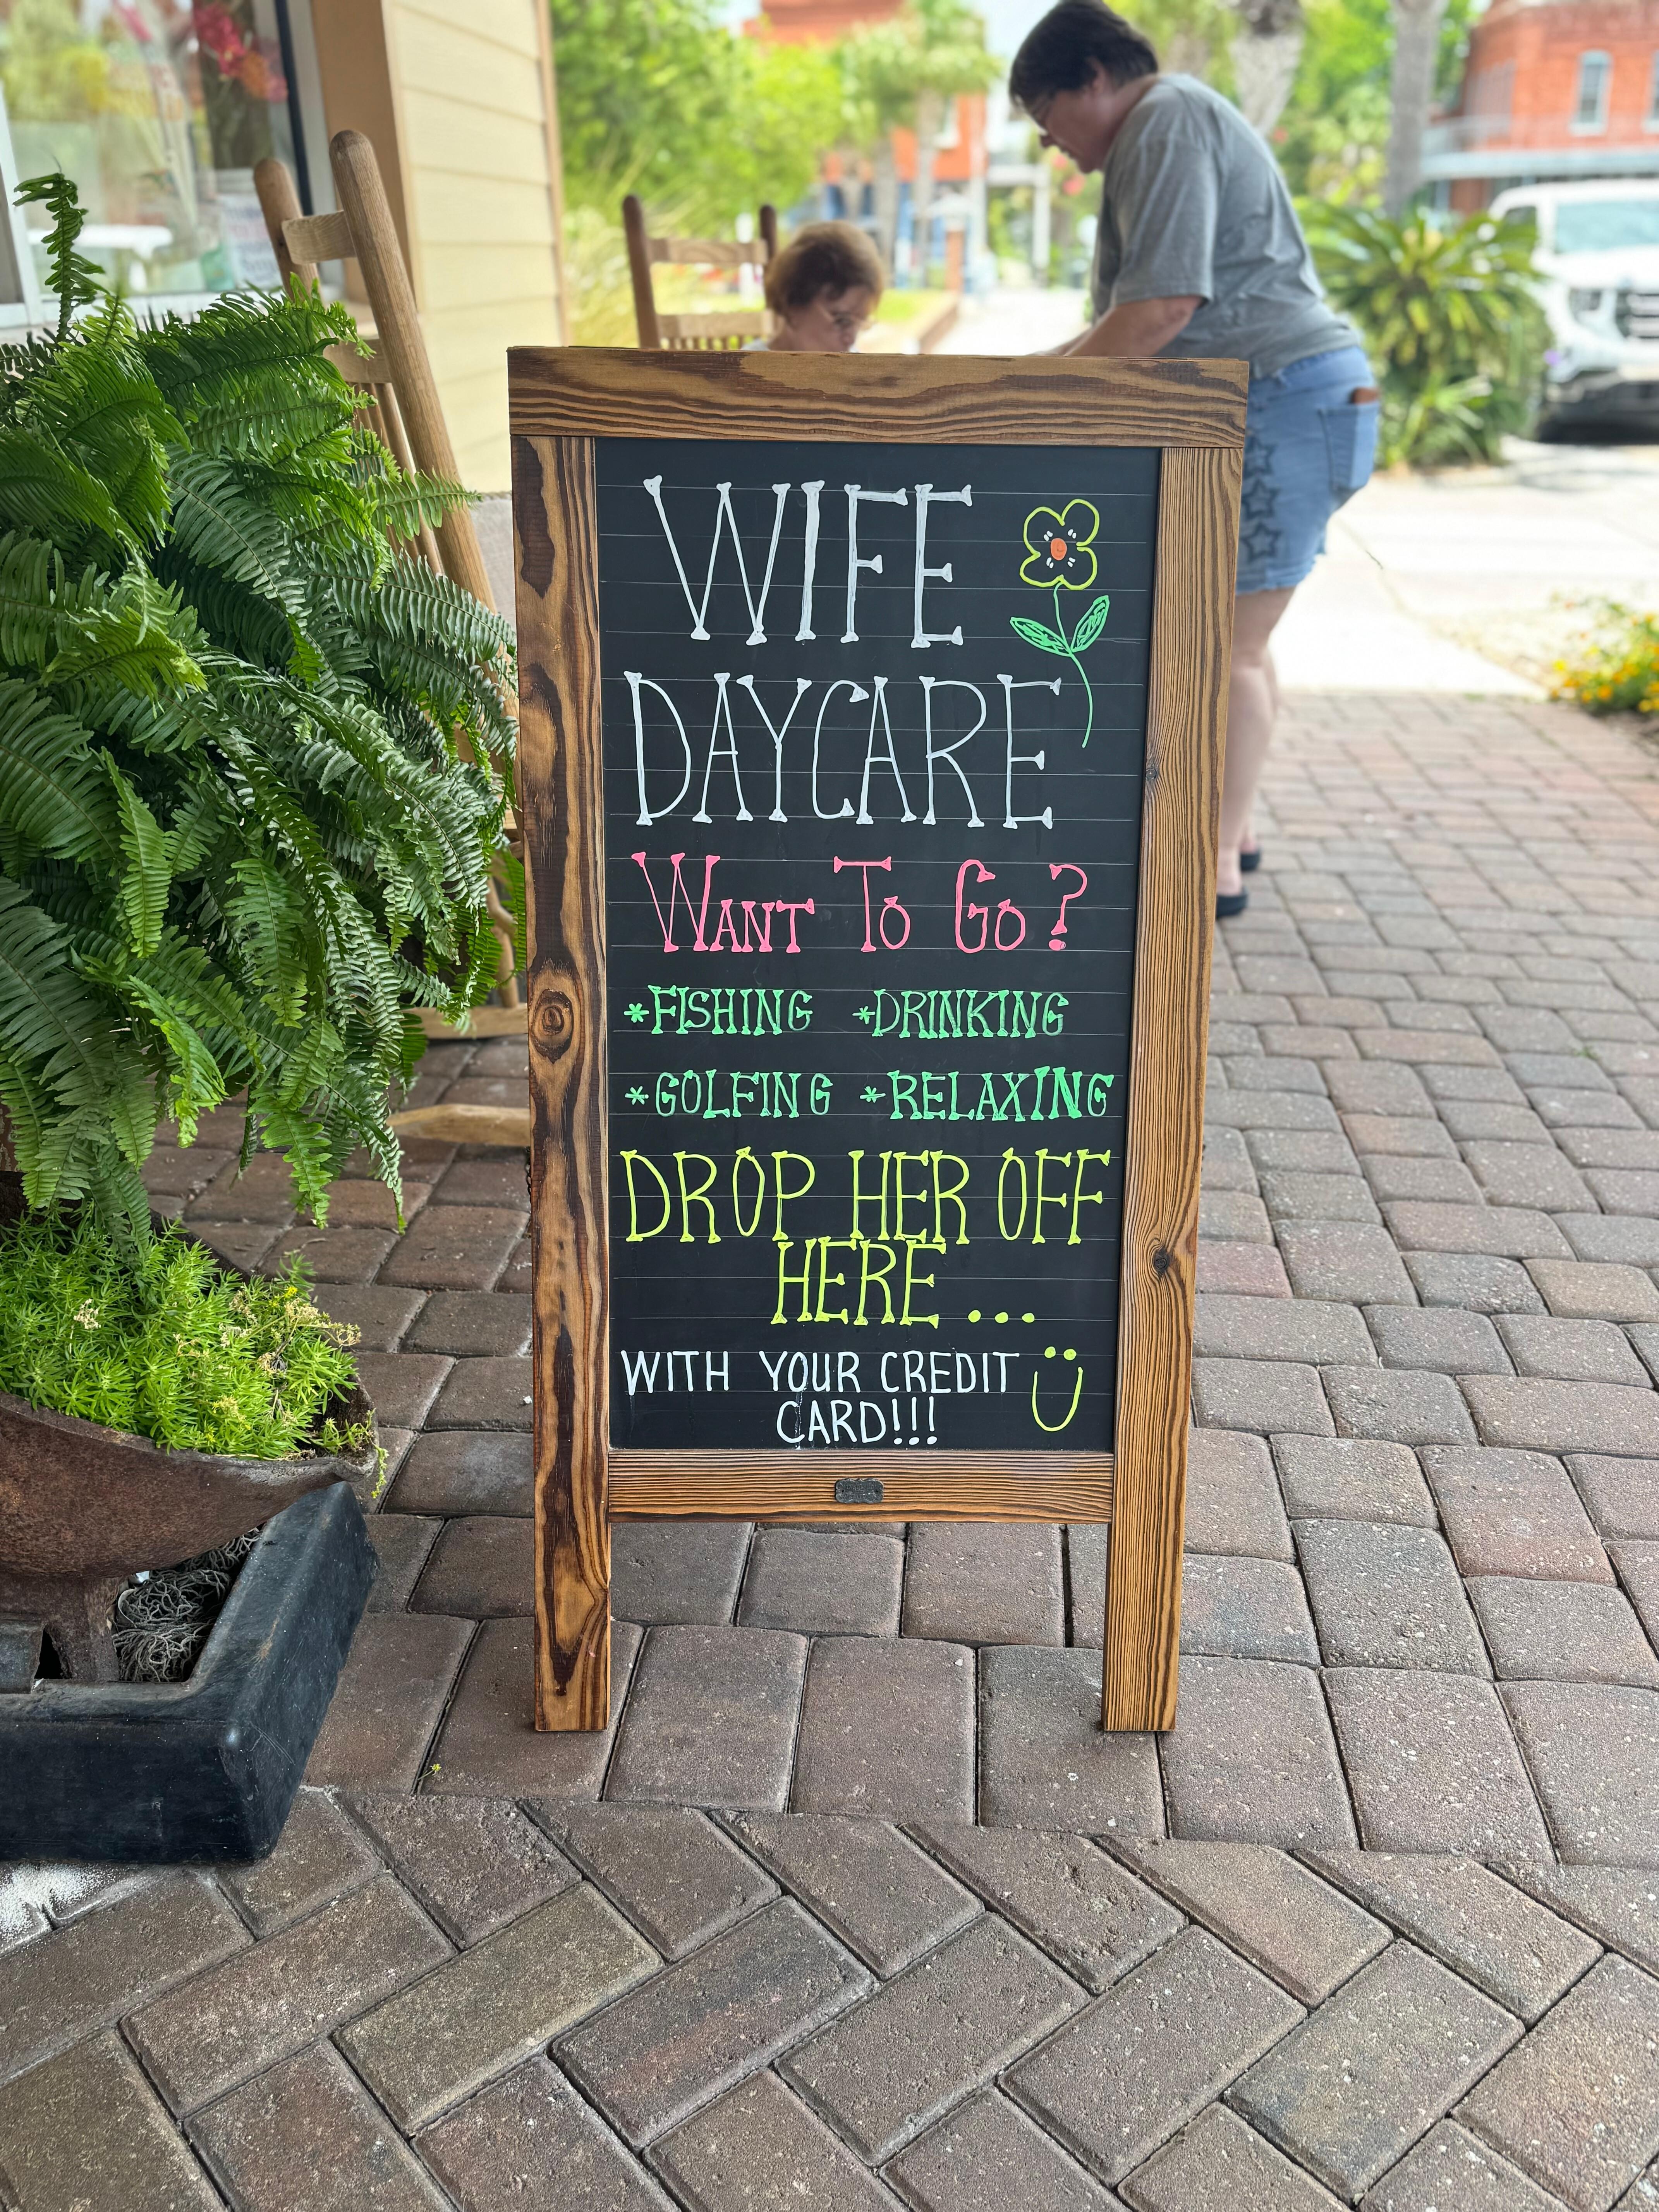 WIFE
DAYCARE
WANT TO GO?
*FISHING *DRINKING
*GOLFING *RELAXING
DROP HER OFF
HERE ...
WITH YOUR CREDIT
CARD!!!